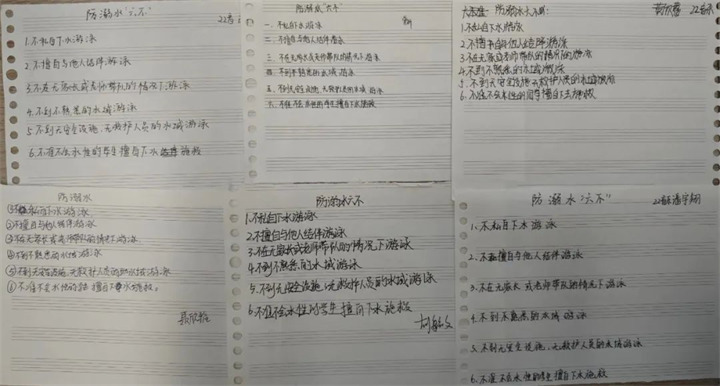 防溺水"六不"
22春
1.不私自下水游泳
2.不擅自与他人结伴游泳
3.不在无家长或老师带队的情况下游泳
4.不到不熟悉的水域游泳
5.不到无安全设施、无救护人员的水域游泳
6.不准不会水性的学生擅自下水施救
防溺水"六不"
一、不私自下水游泳
二、不擅自与他人结伴游泳
三、不在无家长或老师带队的情况下游泳
四、不到不熟悉的水域游泳
五、不到无安全设施、无救护人员的水域游泳
六、不准不会水性的学生擅自下水施救
防溺水六不
1.不私自下水游泳
2.不擅自与他人结伴游泳
3.不在无家长或老师带队的情况下游泳
4.不到不熟悉的水域游泳
5.不到无安全设施、无救护人员的水域游泳
6.不准不会水性的学生擅自下水施救
防溺水
①不私自下水游泳
②不擅自与他人结伴游泳
③不在无家长或老师带队的情况下游泳
④不到不熟悉的水域游泳
⑤不到无安全设施、无救护人员的水域游泳
⑥不准不会水性的学生擅自下水施救。
防溺水六不
1.不私自下水游泳
2.不擅自与他人结伴游泳
3.不在无家长或老师带队的情况下游泳
4.不到不熟悉的水域游泳
5.不到无安全设施、无救护人员的水域游泳
6.不准不会水性的学生擅自下水施救
防溺水"六不"
1.不私自下水游泳
2.不擅自与他人结伴游泳
3.不在无家长或老师带队的情况下游泳
4.不到不熟悉的水域游泳
5.不到无安全设施、无救护人员的水域游泳
6.不准不会水性的学生擅自下水施救